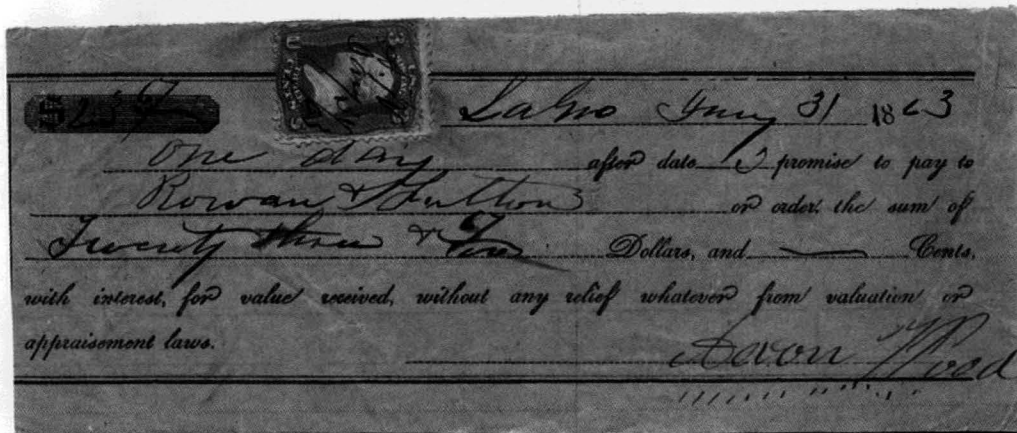 LaGro Jany 31 1863
One day after date I promise to pay to
Rowan & Hutton or order, the sum of
Twenty three & Dollars, and — Cents,
with interest, for value received, without any relief whatever from valuation or
appraisement laws.
Wood